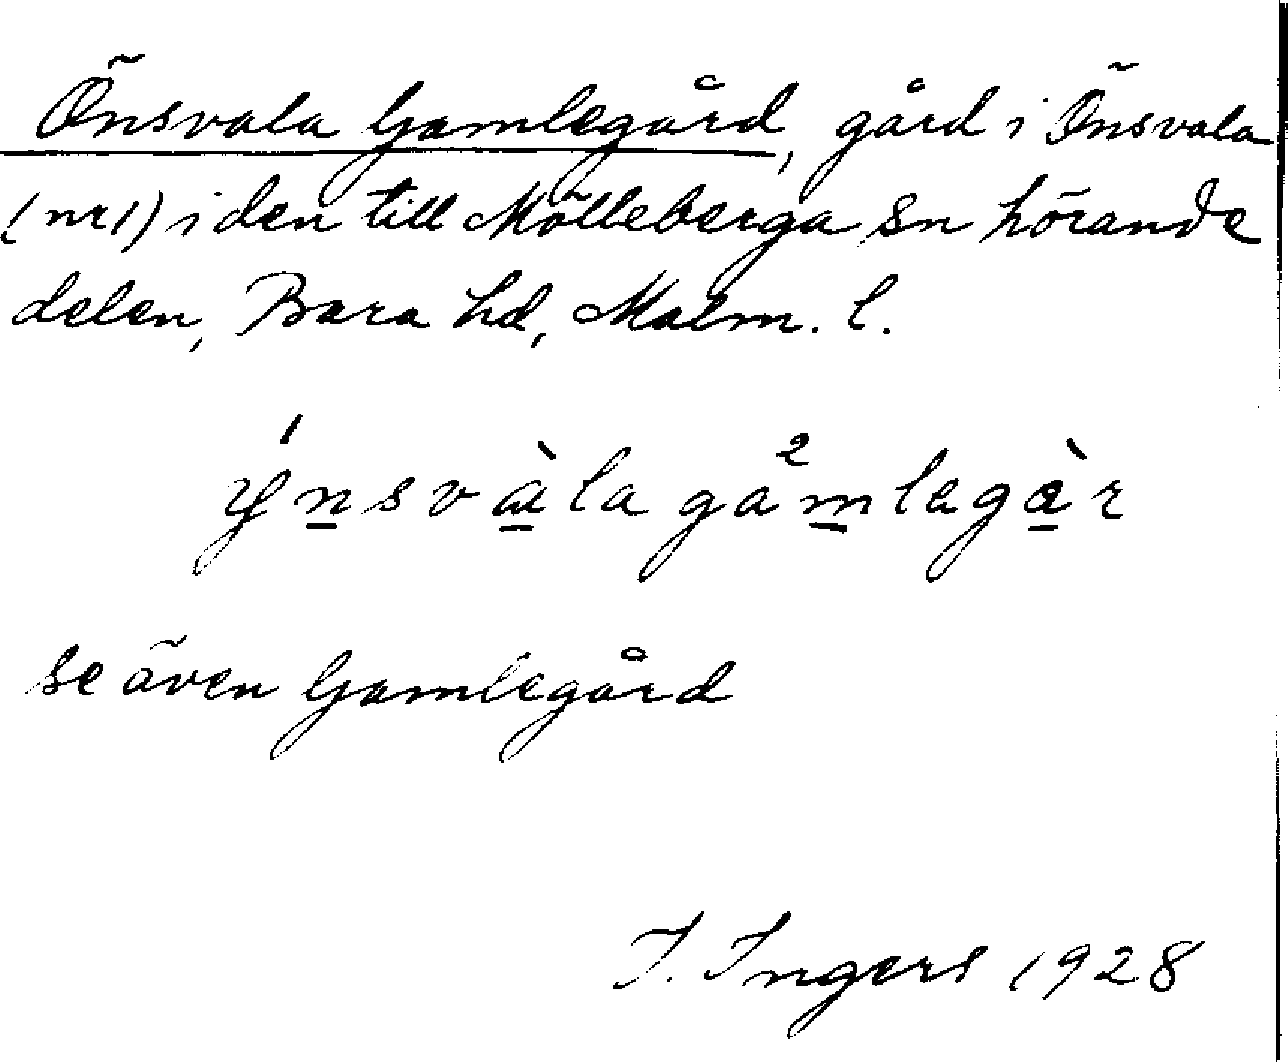 Önsvala Gamlegård, gård i Önsvala
(nr 1) i den till Mölleberga sn hörande
delen, Bara hd, Malm. l.
ýnsvàla gå²mlegàr
se även Gamlegård
I. Ingers 1928